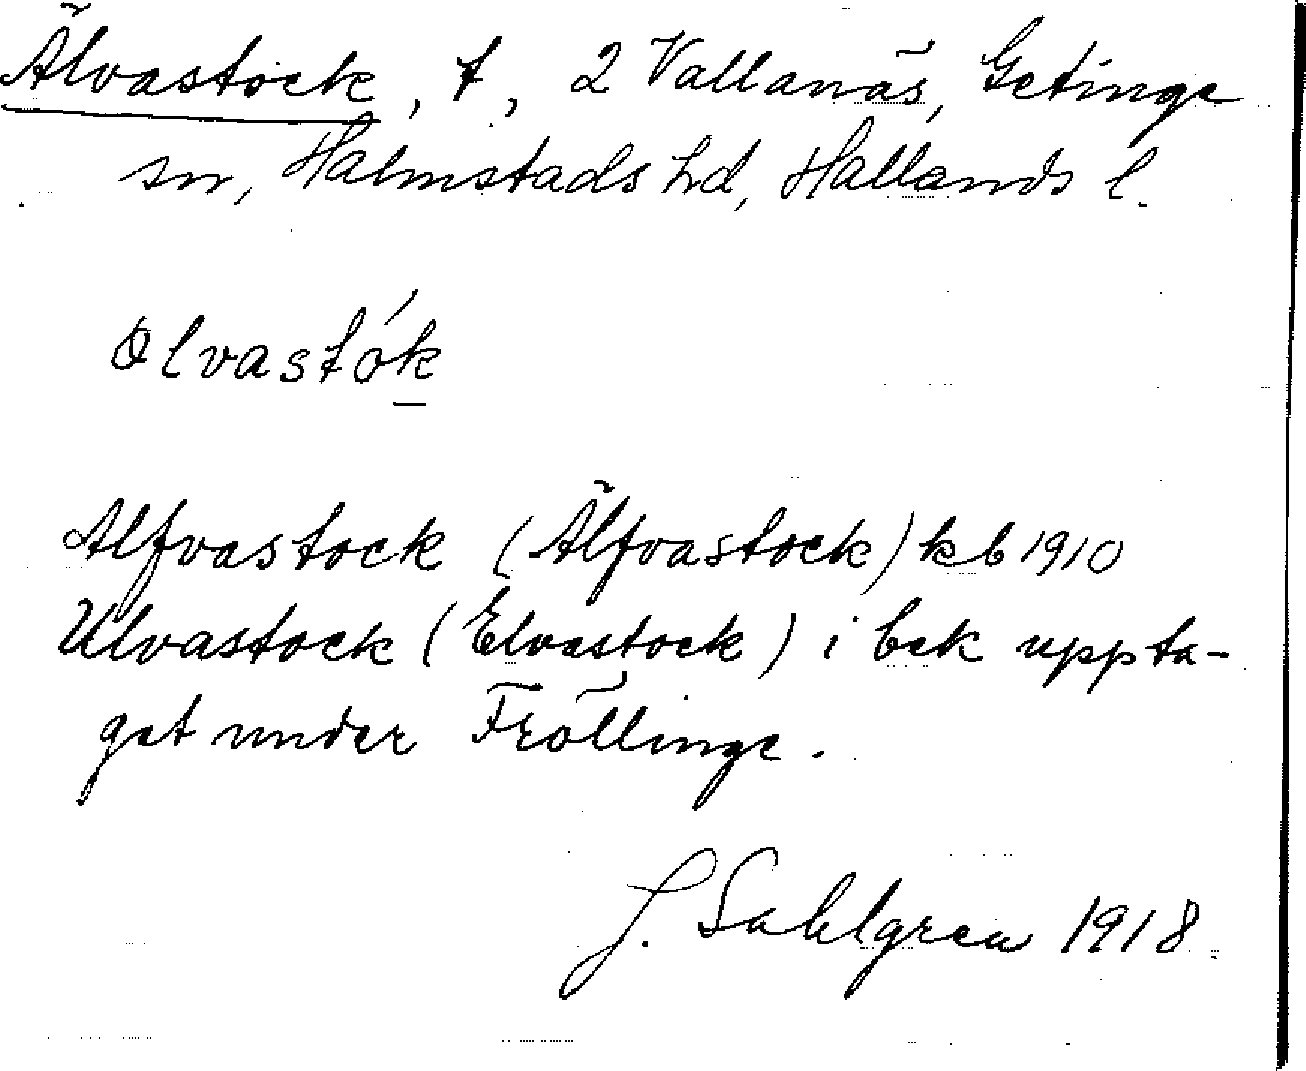 Älvastock, t, 2 Vallanäs, Getinge
sn, Halmstads hd, Hallands l.
Ølvastók
Alfvastock (Älfvastock) kb 1910
Ulvastock (Elvastock) i bek uppta-
get under Fröllinge.
J. Sahlgren 1918